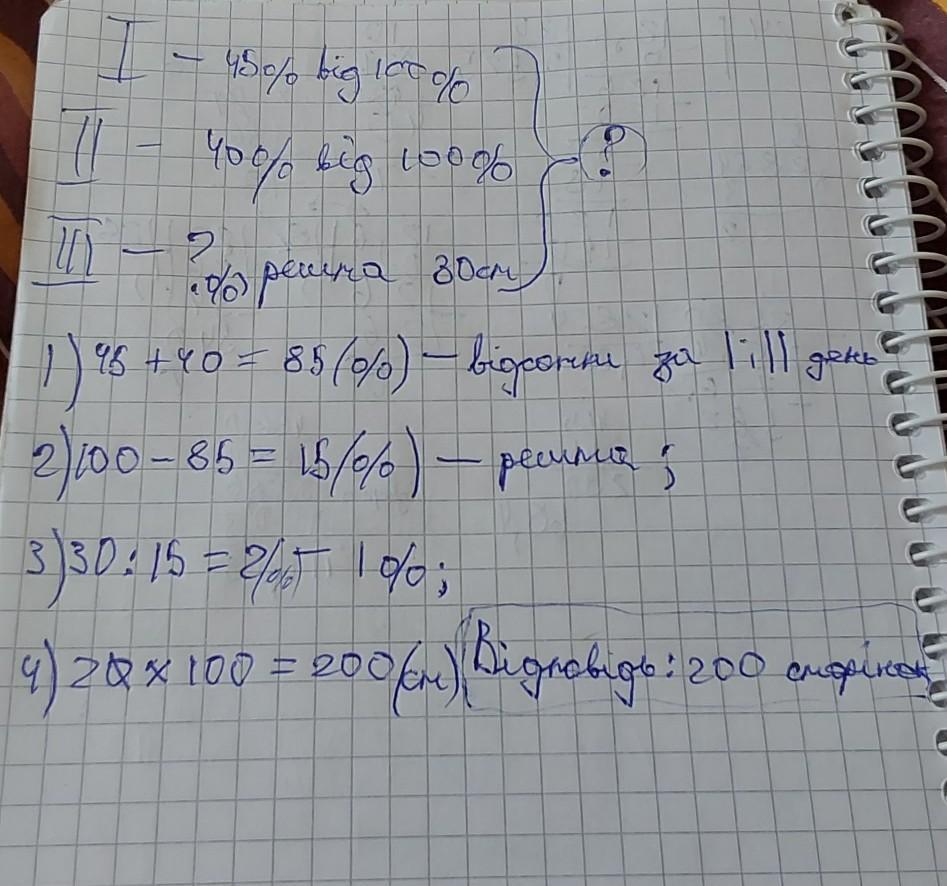 I – 45% від 100%
II – 40% від 100%
?
III – ?
(%) решта 30 ст
1) 45 + 40 = 85 (%) – відсотки за I і II день
2) 100 – 85 = 15 (%) – решта ;
3) 30 : 15 = 2 – 1%;
4) 2 x 100 = 200 (ст) Відповідь: 200 сторінок